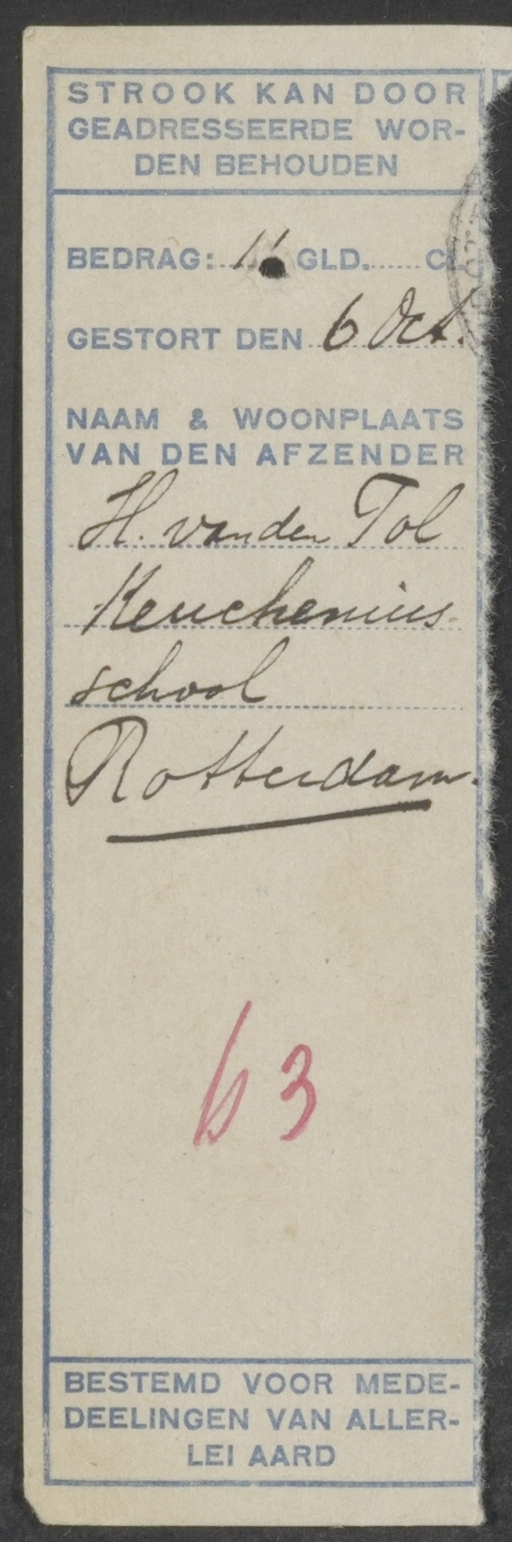 STROOK KAN DOOR
GEADRESSEERDE WOR-
DEN BEHOUDEN
BEDRAG: 11 GLD. C
GESTORT DEN 6 Oct.
NAAM & WOONPLAATS
VAN DEN AFZENDER
H. van den Tol
Keuchenius-
school
Rotterdam.
63
BESTEMD VOOR MEDE-
DEELINGEN VAN ALLER-
LEI AARD